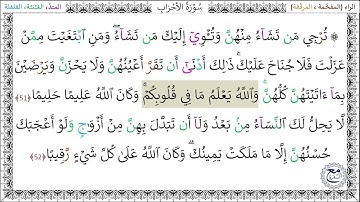 الراء (المفخمة - المرققة) سُورَةُ الأَحْزَابِ المدّ، الغنّة، القلقلة
۞ تُرْجِي مَن تَشَآءُ مِنْهُنَّ وَتُـْٔوِيٓ إِلَيْكَ مَن تَشَآءُۖ وَمَنِ ٱبْتَغَيْتَ مِمَّنْ
عَزَلْتَ فَلَا جُنَاحَ عَلَيْكَۚ ذَٰلِكَ أَدْنَىٰٓ أَن تَقَرَّ أَعْيُنُهُنَّ وَلَا يَحْزَنَّ وَيَرْضَيْنَ
بِمَآ ءَاتَيْتَهُنَّ كُلُّهُنَّۚ وَٱللَّهُ يَعْلَمُ مَا فِي قُلُوبِكُمْۚ وَكَانَ ٱللَّهُ عَلِيمًا حَلِيمًا (51)
لَّا يَحِلُّ لَكَ ٱلنِّسَآءُ مِنۢ بَعْدُ وَلَآ أَن تَبَدَّلَ بِهِنَّ مِنْ أَزْوَٰجٍ وَلَوْ أَعْجَبَكَ
حُسْنُهُنَّ إِلَّا مَا مَلَكَتْ يَمِينُكَۗ وَكَانَ ٱللَّهُ عَلَىٰ كُلِّ شَيْءٍ رَّقِيبًا (52)